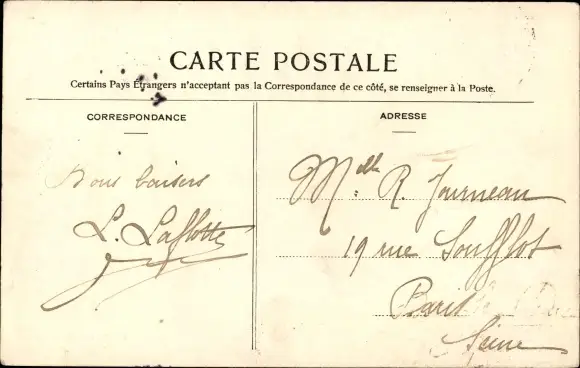 CARTE POSTALE
Certains Pays Étrangers n'acceptant pas la Correspondance de ce côté, se renseigner à la Poste.
CORRESPONDANCE
Bons baisers
L. Laflotte
ADRESSE
Melle R. Journeau
19 rue Soufflot
Paris
Seine